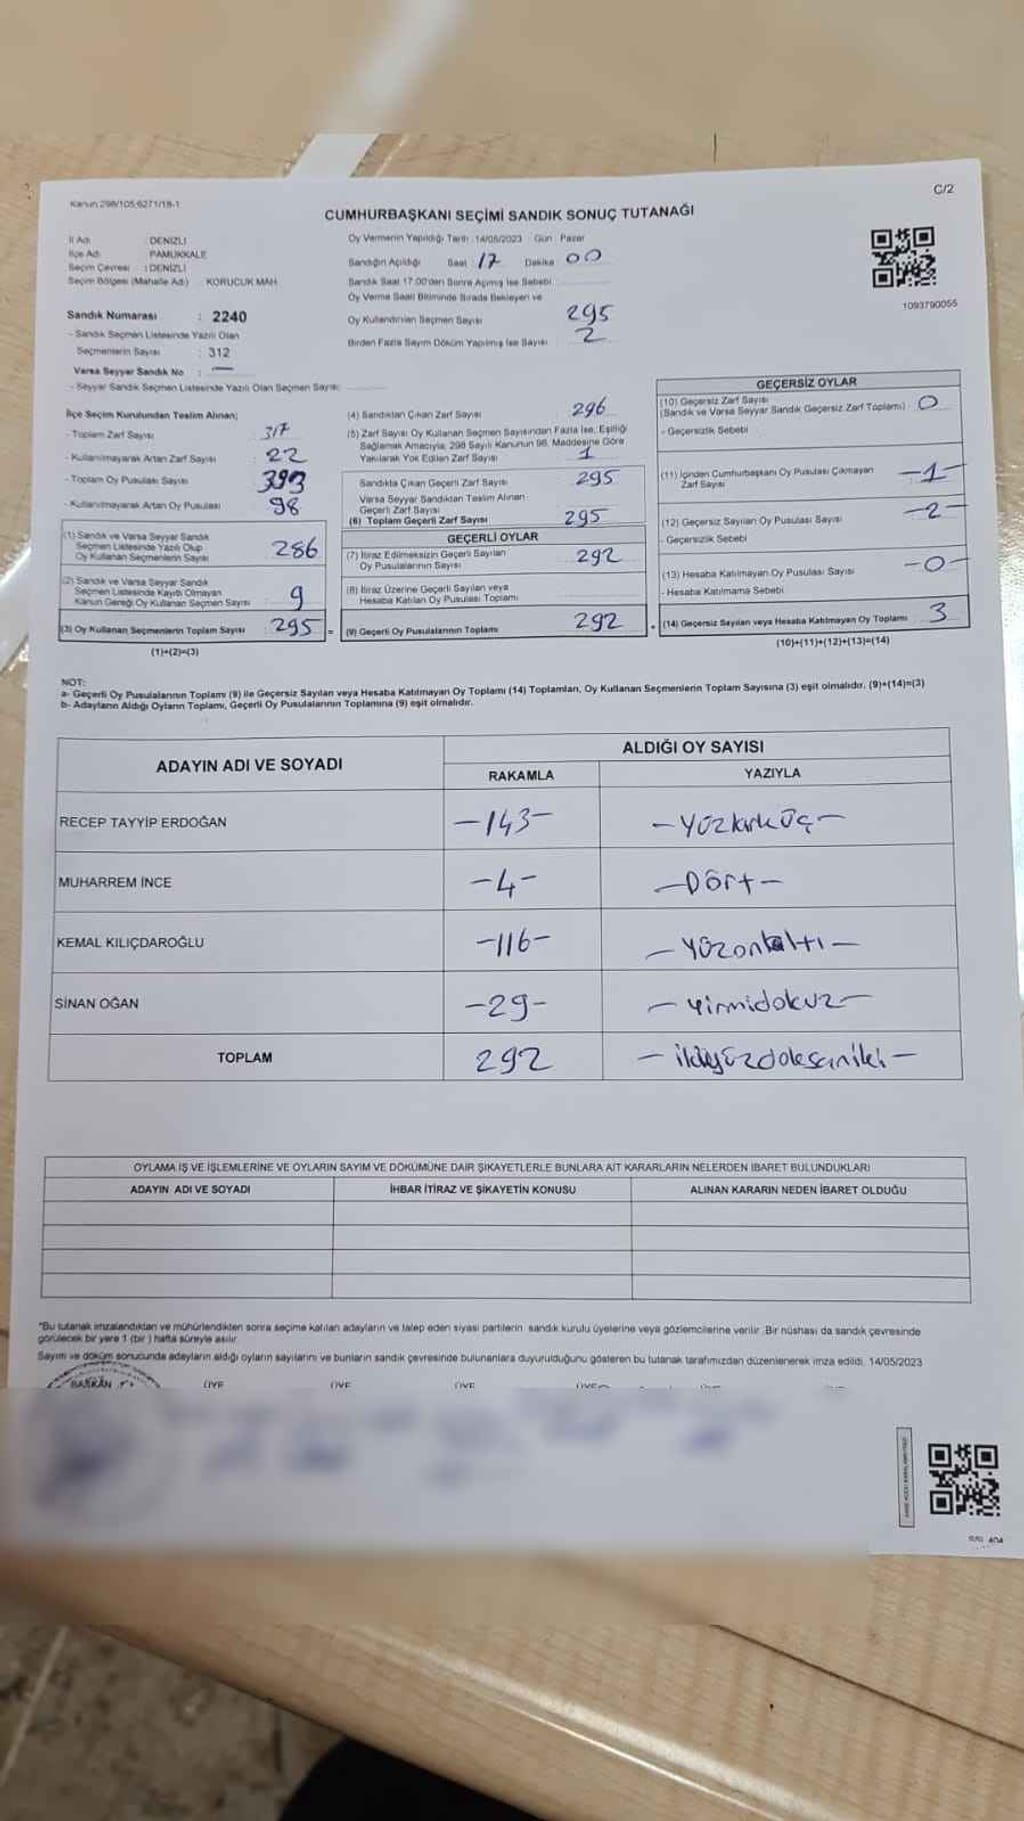 Kanun:298/105,6271/18-1
C/2
CUMHURBAŞKANI SEÇİMİ SANDIK SONUÇ TUTANAĞI
İl Adı : DENİZLİ
İlçe Adı : PAMUKKALE
Seçim Çevresi : DENİZLİ
Seçim Bölgesi (Mahalle Adı) : KORUCUK MAH.
Sandık Numarası : 2240
- Sandık Seçmen Listesinde Yazılı Olan
Seçmenlerin Sayısı : 312
Varsa Seyyar Sandık No : —
- Seyyar Sandık Seçmen Listesinde Yazılı Olan Seçmen Sayısı:
Oy Vermenin Yapıldığı Tarih : 14/05/2023 Gün : Pazar
Sandığın Açıldığı Saat : 17 Dakika 00
Sandık Saat 17:00'den Sonra Açılmış İse Sebebi
Oy Verme Saati Bitiminde Sırada Bekleyen ve
Oy Kullandırılan Seçmen Sayısı 295
Birden Fazla Sayım Döküm Yapılmış İse Sayısı 2
1093790055
İlçe Seçim Kurulundan Teslim Alınan;
- Toplam Zarf Sayısı 317
- Kullanılmayarak Artan Zarf Sayısı 22
- Toplam Oy Pusulası Sayısı 393
- Kullanılmayarak Artan Oy Pusulası 98
(1) Sandık ve Varsa Seyyar Sandık
Seçmen Listesinde Yazılı Olup
Oy Kullanan Seçmenlerin Sayısı 286
(2) Sandık ve Varsa Seyyar Sandık
Seçmen Listesinde Kayıtlı Olmayan
Kanun Gereği Oy Kullanan Seçmen Sayısı 9
(3) Oy Kullanan Seçmenlerin Toplam Sayısı 295 =
(1)+(2)=(3)
(4) Sandıktan Çıkan Zarf Sayısı 296
(5) Zarf Sayısı Oy Kullanan Seçmen Sayısından Fazla İse, Eşitliği
Sağlamak Amacıyla, 298 Sayılı Kanunun 98. Maddesine Göre
Yakılarak Yok Edilen Zarf Sayısı 1
Sandıkta Çıkan Geçerli Zarf Sayısı 295
Varsa Seyyar Sandıktan Teslim Alınan
Geçerli Zarf Sayısı
(6) Toplam Geçerli Zarf Sayısı 295
GEÇERLİ OYLAR
(7) İtiraz Edilmeksizin Geçerli Sayılan
Oy Pusulalarının Sayısı 292
(8) İtiraz Üzerine Geçerli Sayılan veya
Hesaba Katılan Oy Pusulası Toplamı
(9) Geçerli Oy Pusulalarının Toplamı 292 +
GEÇERSİZ OYLAR
(10) Geçersiz Zarf Sayısı
(Sandık ve Varsa Seyyar Sandık Geçersiz Zarf Toplamı) 0
- Geçersizlik Sebebi
(11) İçinden Cumhurbaşkanı Oy Pusulası Çıkmayan
Zarf Sayısı -1-
(12) Geçersiz Sayılan Oy Pusulası Sayısı -2-
- Geçersizlik Sebebi
(13) Hesaba Katılmayan Oy Pusulası Sayısı -0-
- Hesaba Katılmama Sebebi
(14) Geçersiz Sayılan veya Hesaba Katılmayan Oy Toplamı 3
(10)+(11)+(12)+(13)=(14)
NOT:
a- Geçerli Oy Pusulalarının Toplamı (9) ile Geçersiz Sayılan veya Hesaba Katılmayan Oy Toplamı (14) Toplamları, Oy Kullanan Seçmenlerin Toplam Sayısına (3) eşit olmalıdır. (9)+(14)=(3)
b- Adayların Aldığı Oyların Toplamı, Geçerli Oy Pusulalarının Toplamına (9) eşit olmalıdır.
ADAYIN ADI VE SOYADI
ALDIĞI OY SAYISI
RAKAMLA YAZIYLA
RECEP TAYYİP ERDOĞAN -143- -Yüzkırküç-
MUHARREM İNCE -4- -Dört-
KEMAL KILIÇDAROĞLU -116- -Yüzonaltı-
SİNAN OĞAN -29- -Yirmidokuz-
TOPLAM 292 -ikiyüzdoksaniki-
OYLAMA İŞ VE İŞLEMLERİNE VE OYLARIN SAYIM VE DÖKÜMÜNE DAİR ŞİKAYETLERLE BUNLARA AİT KARARLARIN NELERDEN İBARET BULUNDUKLARI
ADAYIN ADI VE SOYADI İHBAR İTİRAZ VE ŞİKAYETİN KONUSU ALINAN KARARIN NEDEN İBARET OLDUĞU
*Bu tutanak imzalandıktan ve mühürlendikten sonra seçime katılan adayların ve talep eden siyasi partilerin sandık kurulu üyelerine veya gözlemcilerine verilir. Bir nüshası da sandık çevresinde
görülecek bir yere 1 (bir) hafta süreyle asılır.
Sayım ve döküm sonucunda adayların aldığı oyların sayılarını ve bunların sandık çevresinde bulunanlara duyurulduğunu gösteren bu tutanak tarafımızdan düzenlenerek imza edildi. 14/05/2023
BAŞKAN ÜYE ÜYE ÜYE ÜYE